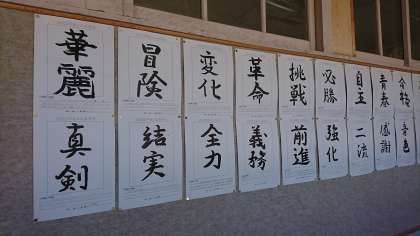 華麗
冒険
変化
革命
挑戦
必勝
自主
青春
真剣
結実
全力
義務
前進
強化
二流
感謝
音色